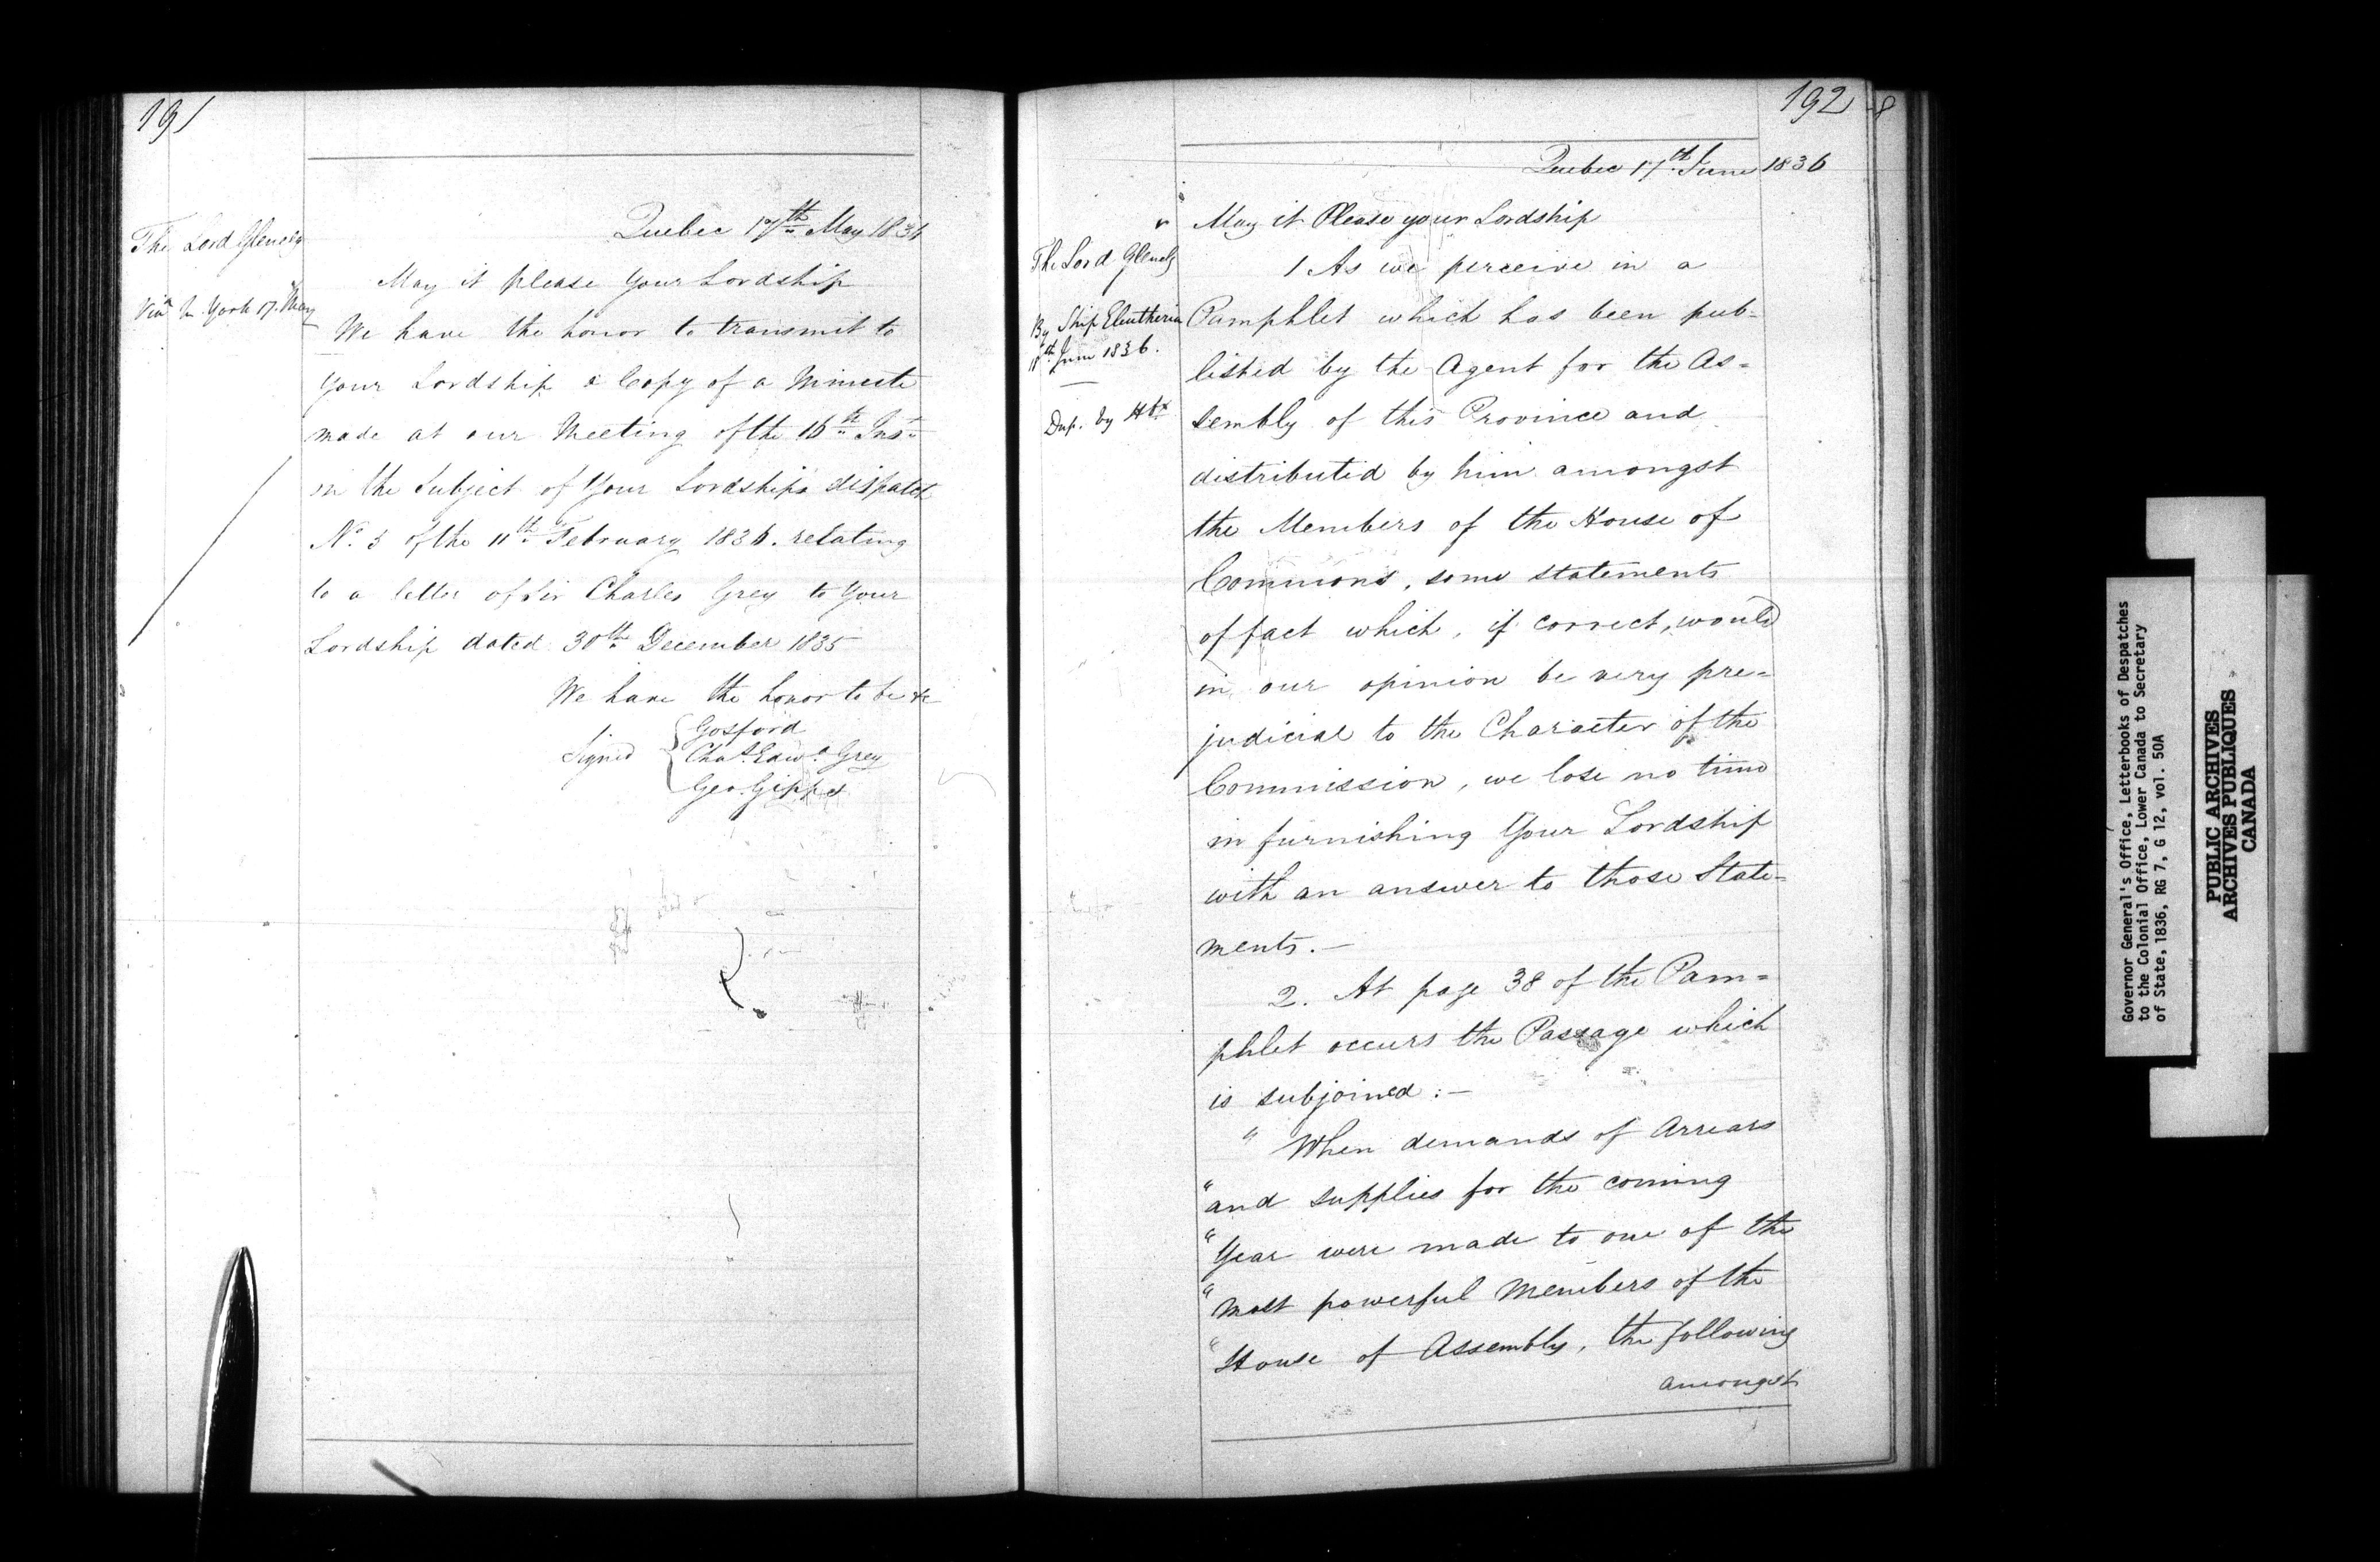 191
Quebec 17th May 1836
The Lord Glenelg
Via N. York 17. May
May it please Your Lordship
We have the honor to transmit to
Your Lordship a Copy of a Minute
made at our Meeting of the 16th Inst
on the Subject of Your Lordship's dispatch
No. 3 of the 11th February 1836. relating
to a letter of Sir Charles Grey to Your
Lordship dated 30th December 1835
We have the honor to be &c
Signed
Gosford
Chas. Edwd. Grey
Geo. Gipps
192
8
Quebec 17th June 1836
The Lord Glenelg
By Ship Eleutheria
18th June 1836.
Dup. by Hx
May it Please your Lordship
1 As we perceive in a
Pamphlet which has been pub=
lished by the Agent for the As=
sembly of this Province and
distributed by him amongst
the Members of the House of
Commons, some statements
of fact which, if correct, would
in our opinion be very pre=
judicial to the Character of the
Commission, we lose no time
in furnishing Your Lordship
with an answer to those State=
ments.—
2. At page 38 of the Pam=
phlet occurs the Passage which
is subjoined:—
" When demands of Arrears
" and supplies for the coming
" Year were made to one of the
" most powerful Members of the
" House of Assembly, the following
amongst
Governor General's Office, Letterbooks of Despatches
to the Colonial Office, Lower Canada to Secretary
of State, 1836, RG 7, G 12, vol. 50A
PUBLIC ARCHIVES
ARCHIVES PUBLIQUES
CANADA